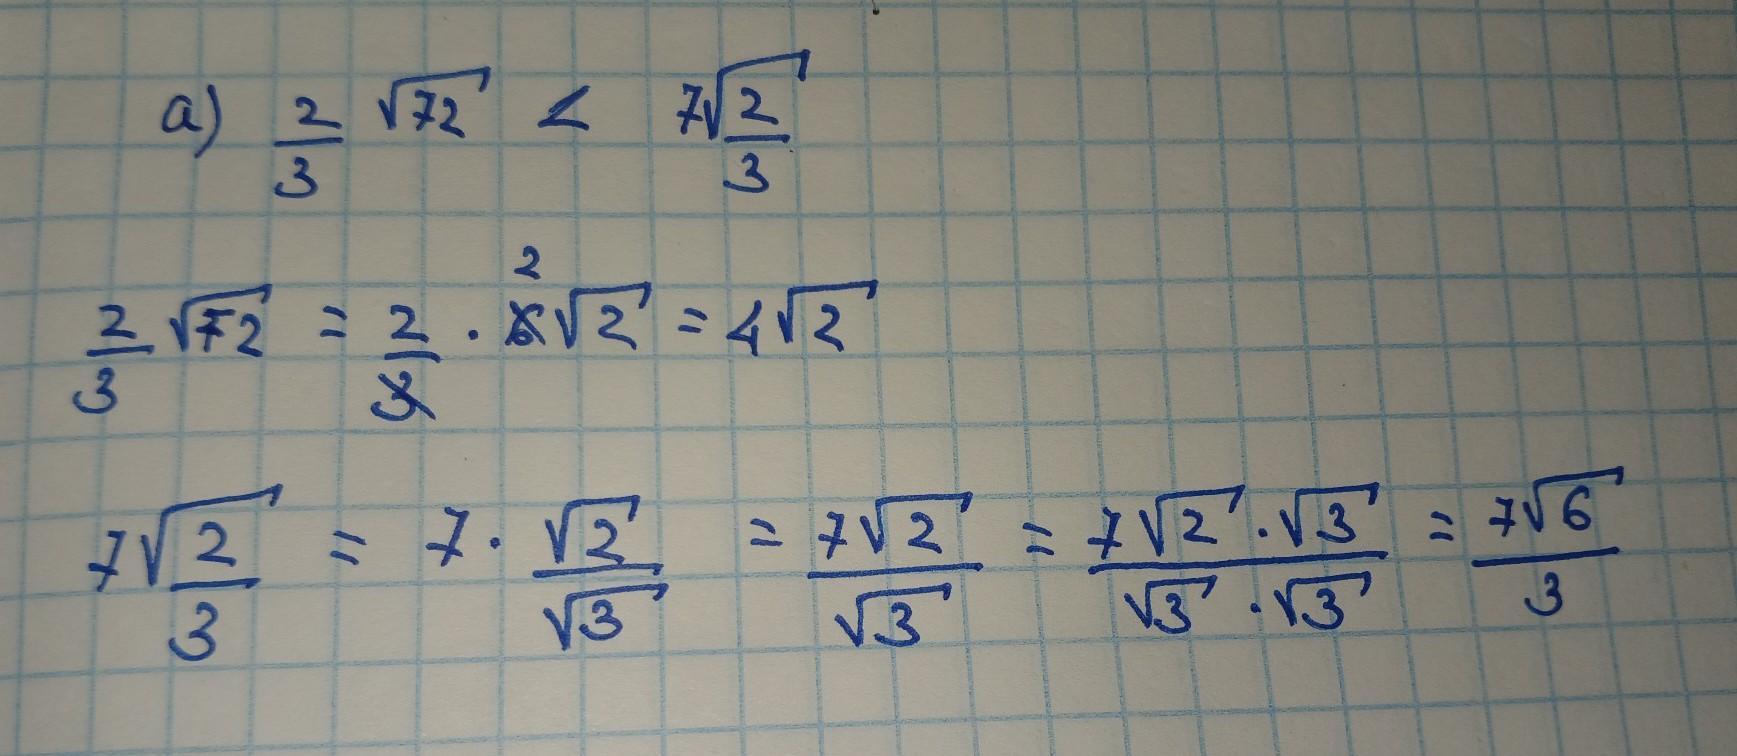 a) 2/3 √72 < 7√(2/3)
2/3 √72 = 2/3 · 6 2 √2 = 4√2
7√(2/3) = 7 · √2/√3 = 7√2/√3 = 7√2 · √3/√3 · √3 = 7√6/3